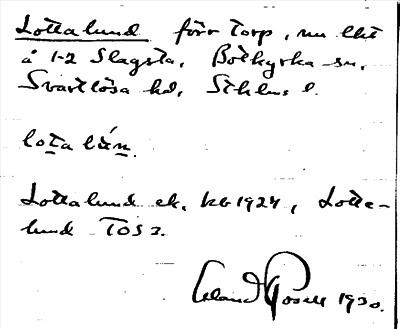 Lottalund förr torp, nu lht
å 1-2 Slagsta, Botkyrka sn,
Svartlösa hd, Sthlms l.
lota lún.
Lottalund ek. kb 1924, Lotta-
lund TOS 2.
Erland Rosell 1930.